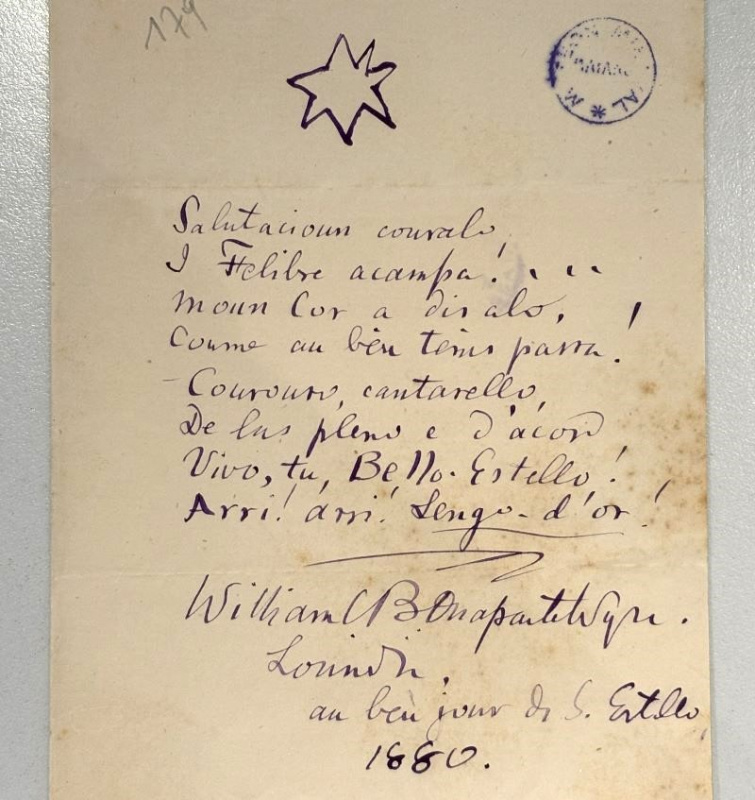 179
Salutacioun couralo
I Felibre acampa! . . .
Moun Cor a dis alo,
Coume au bèu tèms passa!
- Courouso, cantarello,
De lus pleno e d'acord
Vivo, tu, Bello-Estello!
Arri! arri! Lengo-d'or!
William C Bonaparte Wyse.
Loundre,
au bèu jour de S. Estello,
1880.